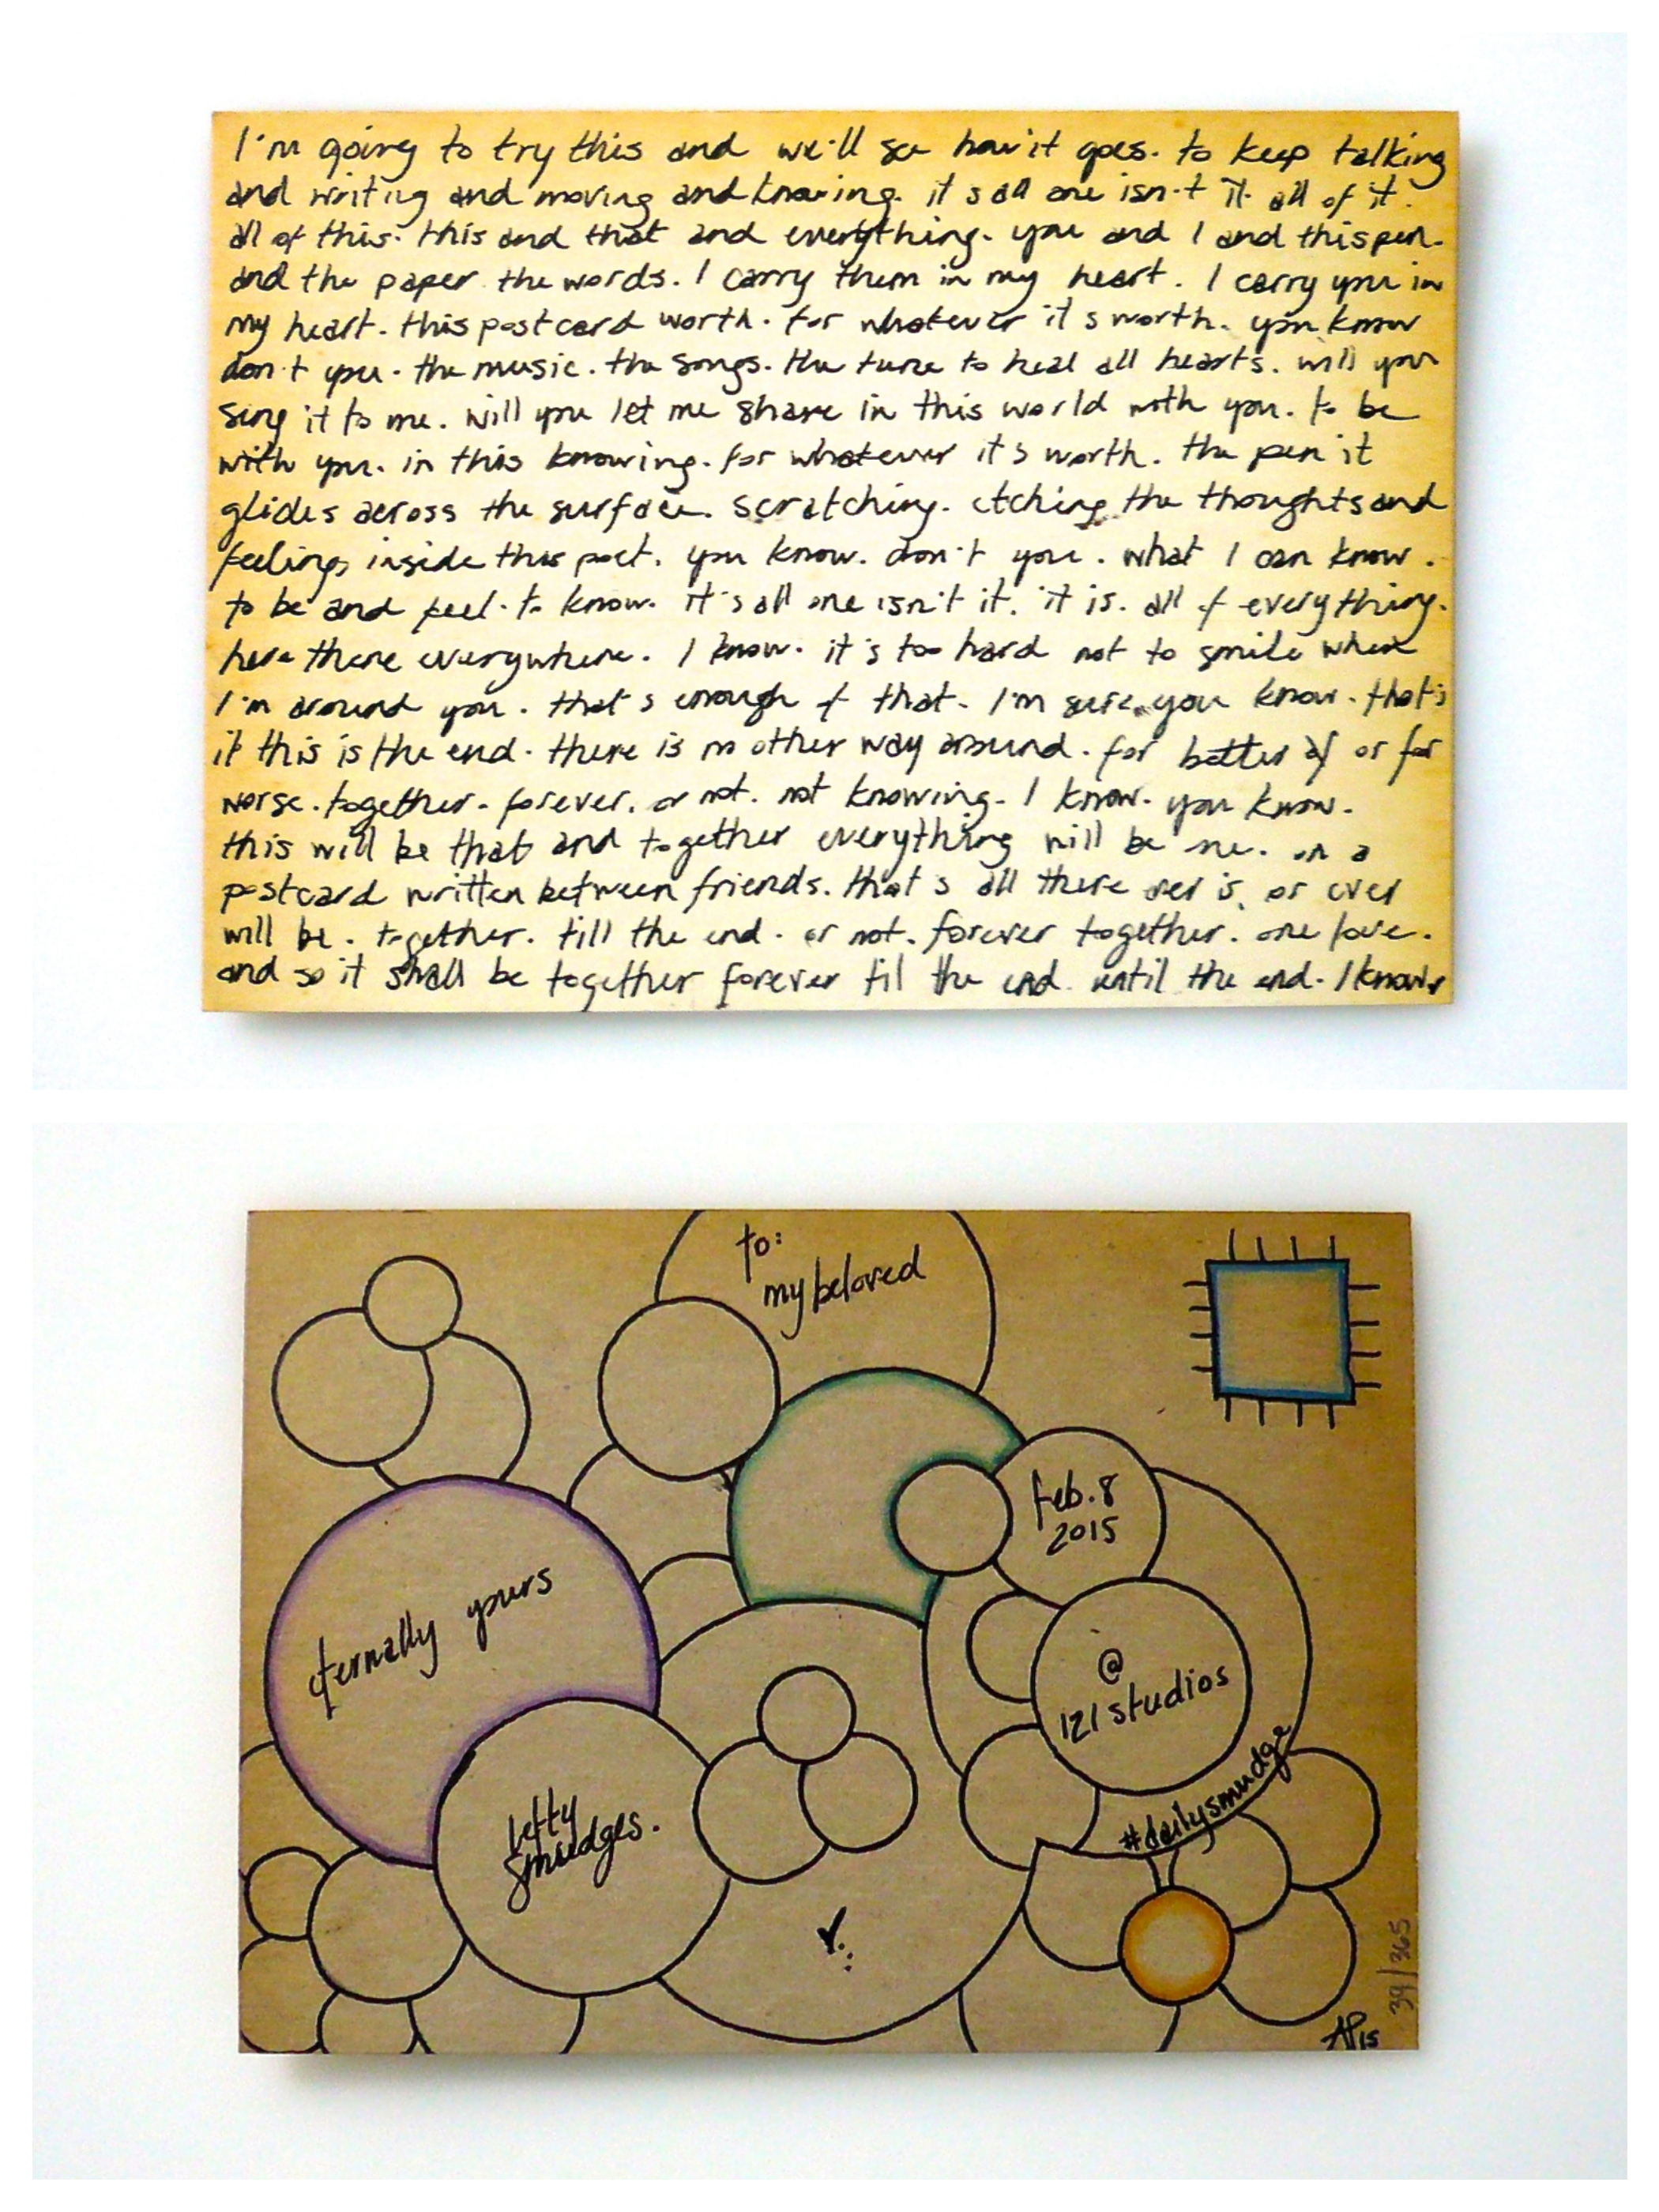 I'm going to try this and we'll see how it goes. to keep talking
and writing and moving and knowing. it's all one isn't it. all of it.
all of this. this and that and everything. you and I and this pen.
and the paper the words. I carry them in my heart. I carry you in
my heart. this postcard worth. for whatever it's worth. you know
don't you. the music. the songs. the tune to heal all hearts. will you
sing it to me. will you let me share in this world with you. to be
with you. in this knowing. for whatever it's worth. the pen it
glides across the surface. scratching. etching the thoughts and
feelings inside this poet. you know. don't you. what I can know.
to be and feel. to know. it's all one isn't it. it is. all of everything.
here there everywhere. I know. it's too hard not to smile when
I'm around you. that's enough of that. I'm sure you know. that's
it this is the end. there is no other way around. for better of or for
worse. together. forever. or not. not knowing. I know. you know.
this will be that and together everything will be one. on a
postcard written between friends. that's all there ever is. or ever
will be. together. till the end. or not. forever together. one love.
and so it shall be together forever til the end. until the end. I know
to:
my beloved
feb. 8
2015
eternally yours
@
121 studios
#dailysmudge
lefty
smudges.
39/365
AP15